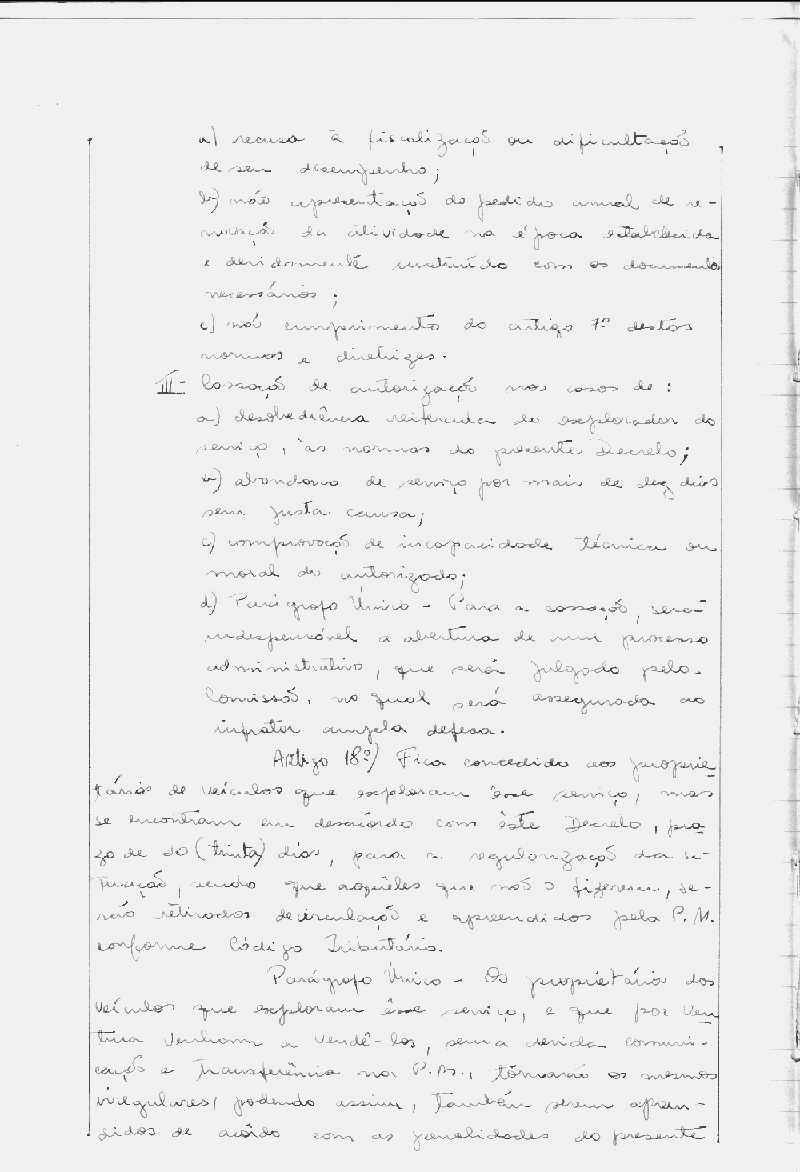 a) recusa à fiscalização ou dificultação
de seu desempenho;
b) não apresentação do pedido anual de re-
novação da atividade na época estabelecida
e devidamente instruído com os documentos
necessários;
c) não cumprimento do artigo 7º destas
normas e diretrizes.
III- Cassação de autorização nos casos de:
a) desobediência reiterada do explorador do
serviço, às normas do presente Decreto;
b) abandono de serviço por mais de dez dias
sem justa causa;
c) comprovação de incapacidade técnica ou
moral do autorizado;
d) Parágrafo Único - Para a cassação, será
indispensável a abertura de um processo
administrativo, que será julgado pela
Comissão, no qual será assegurada ao
infrator ampla defesa.
Artigo 18º) Fica concedido aos proprie-
tários de veículos que exploram êsse serviço, mas
se encontram em desacôrdo com êste Decreto, pra-
zo de 30 (trinta) dias, para a regularização da si-
tuação, sendo que aquêles que não o fizerem, se-
rão retirados de circulação e apreendidos pela P.M.
conforme Código Tributário.
Parágrafo Único - Os proprietários dos
veículos que exploram êsse serviço, e que por ven-
tura venham a vendê-los, sem a devida comuni-
cação e transferência na P.M., tornarão os mesmos
irregulares, podendo assim, também serem apreen-
didos de acôrdo com as penalidades do presente